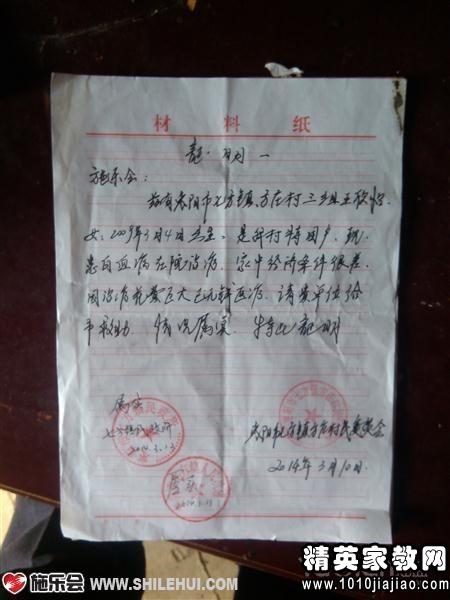 材 料 纸
证 明
施乐会：
兹有枣阳市七方镇方庄村三组王欣怡
女：2009年3月4日出生，是我村特困户，现
患白血病在院治病，家中经济条件很差，
因治病花费巨大已无钱医治，请贵单位给
予救助 情况属实 特此证明
属实
七方镇民政所
2014.3.13
枣阳市七方镇方庄村民委员会
2014年3月10日.
施乐会
WWW.SHILEHUI.COM
精英家教网
www.1010jiajiao.com